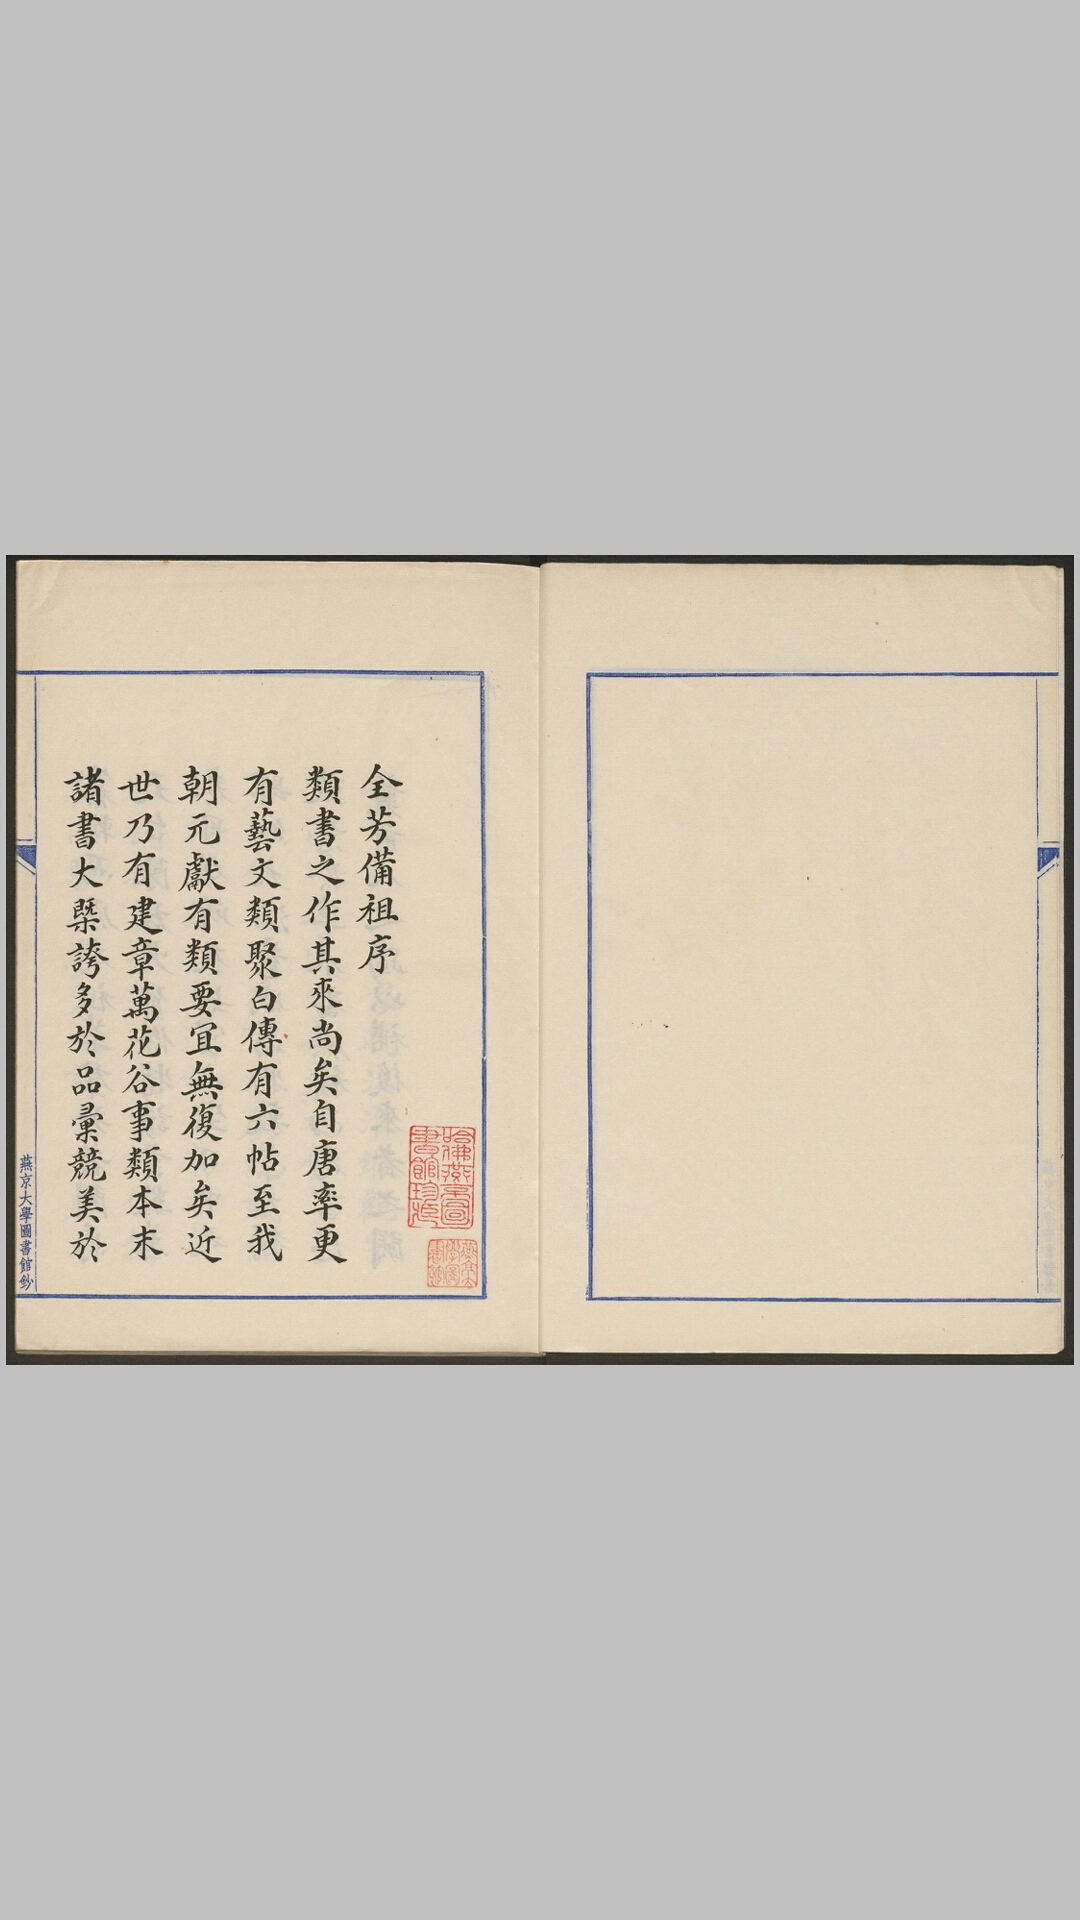 全芳備祖序
類書之作其來尚矣自唐率更
有藝文類聚白傳有六帖至我
朝元獻有類要冝無復加矣近
世乃有建章萬花谷事類本末
諸書大槩誇多於品彙競美於
燕京大學圖書館鈔
哈佛燕京圖書館珍藏